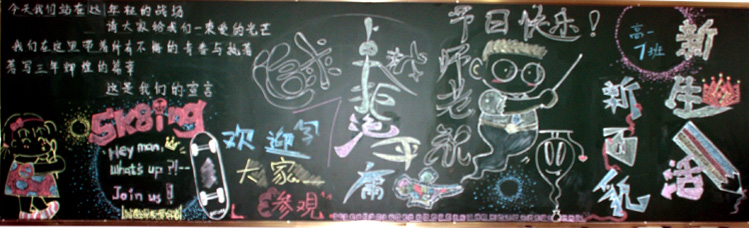 今天我们站在这年轻的战场
请大家给我们一束爱的光芒
我们在这里带着所有不悔的青春与执著
著写三年辉煌的篇章
这是我们的宣言
SK8ing
Hey man,
what's up ?!--
Join us !
欢迎学
大家
参观
拒
泡
平庸
节日快乐!
老师
祝
高一
7班
新生活
新面貌